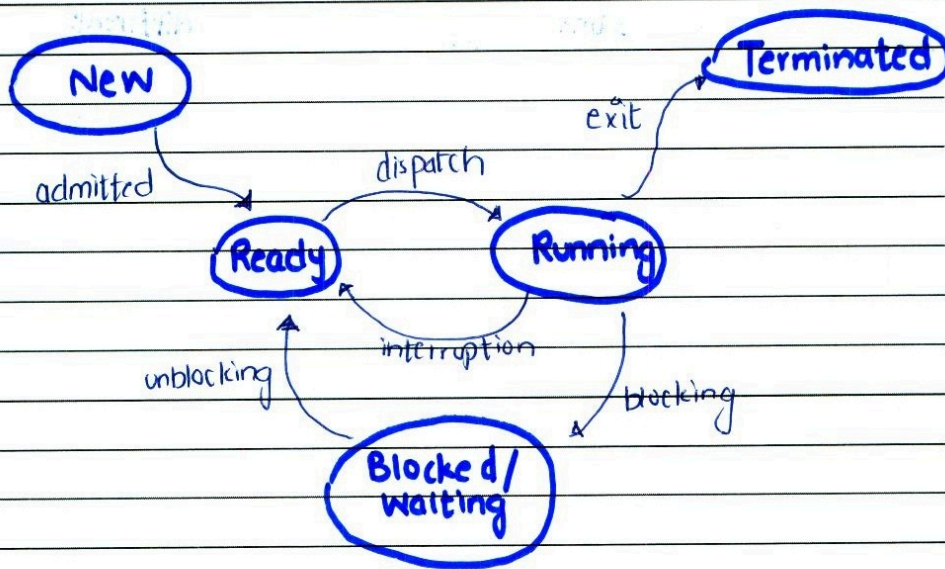 New
Terminated
exit
admitted
dispatch
Ready
Running
interruption
unblocking
blocking
Blocked/
Waiting